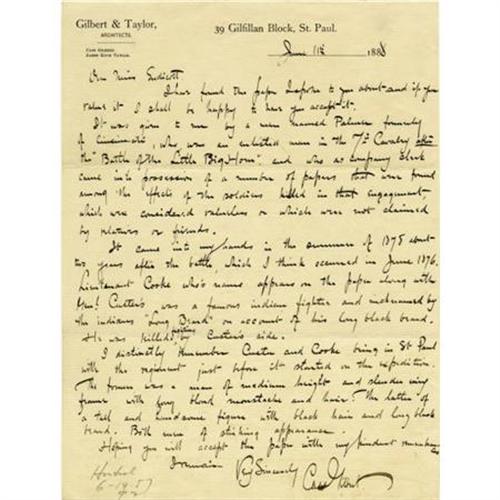 Gilbert & Taylor,
ARCHITECTS.
CASS GILBERT.
JAMES KNOX TAYLOR.
39 Gilfillan Block, St. Paul.
June 11th 1888
Dear Miss Endicott
I have found the paper I spoke to you about and if you
value it I shall be happy to have you accept it.
It was given to me by a man named Palmer formerly
of Cincinnati, who was an enlisted man in the 7th Cavalry after
the "Battle of the Little Big Horn" and who as company clerk
came into possession of a number of papers that were found
among the effects of the soldiers killed in that engagement,
which were considered valueless or which were not claimed
by relatives or friends.
It came into my hands in the summer of 1878 about
two years after the battle, which I think occurred in June 1876.
Lieutenant Cooke who's name appears on the paper along with
Gen! Custer's was a famous indian fighter and nicknamed by
the indians "Long Beard" on account of his long black beard.
He was killed fighting by Custer's side.
I distinctly remember Custer and Cooke being in St Paul
with the regiment just before it started on the expedition.
The former was a man of medium height and slender
frame with long blond moustache and hair. The latter of
a tall and handsome figure with black hair and long black
beard. Both men of striking appearance.
Hoping you will accept the paper with my
I remain Very Sincerely Cass Gilbert
6-19-57